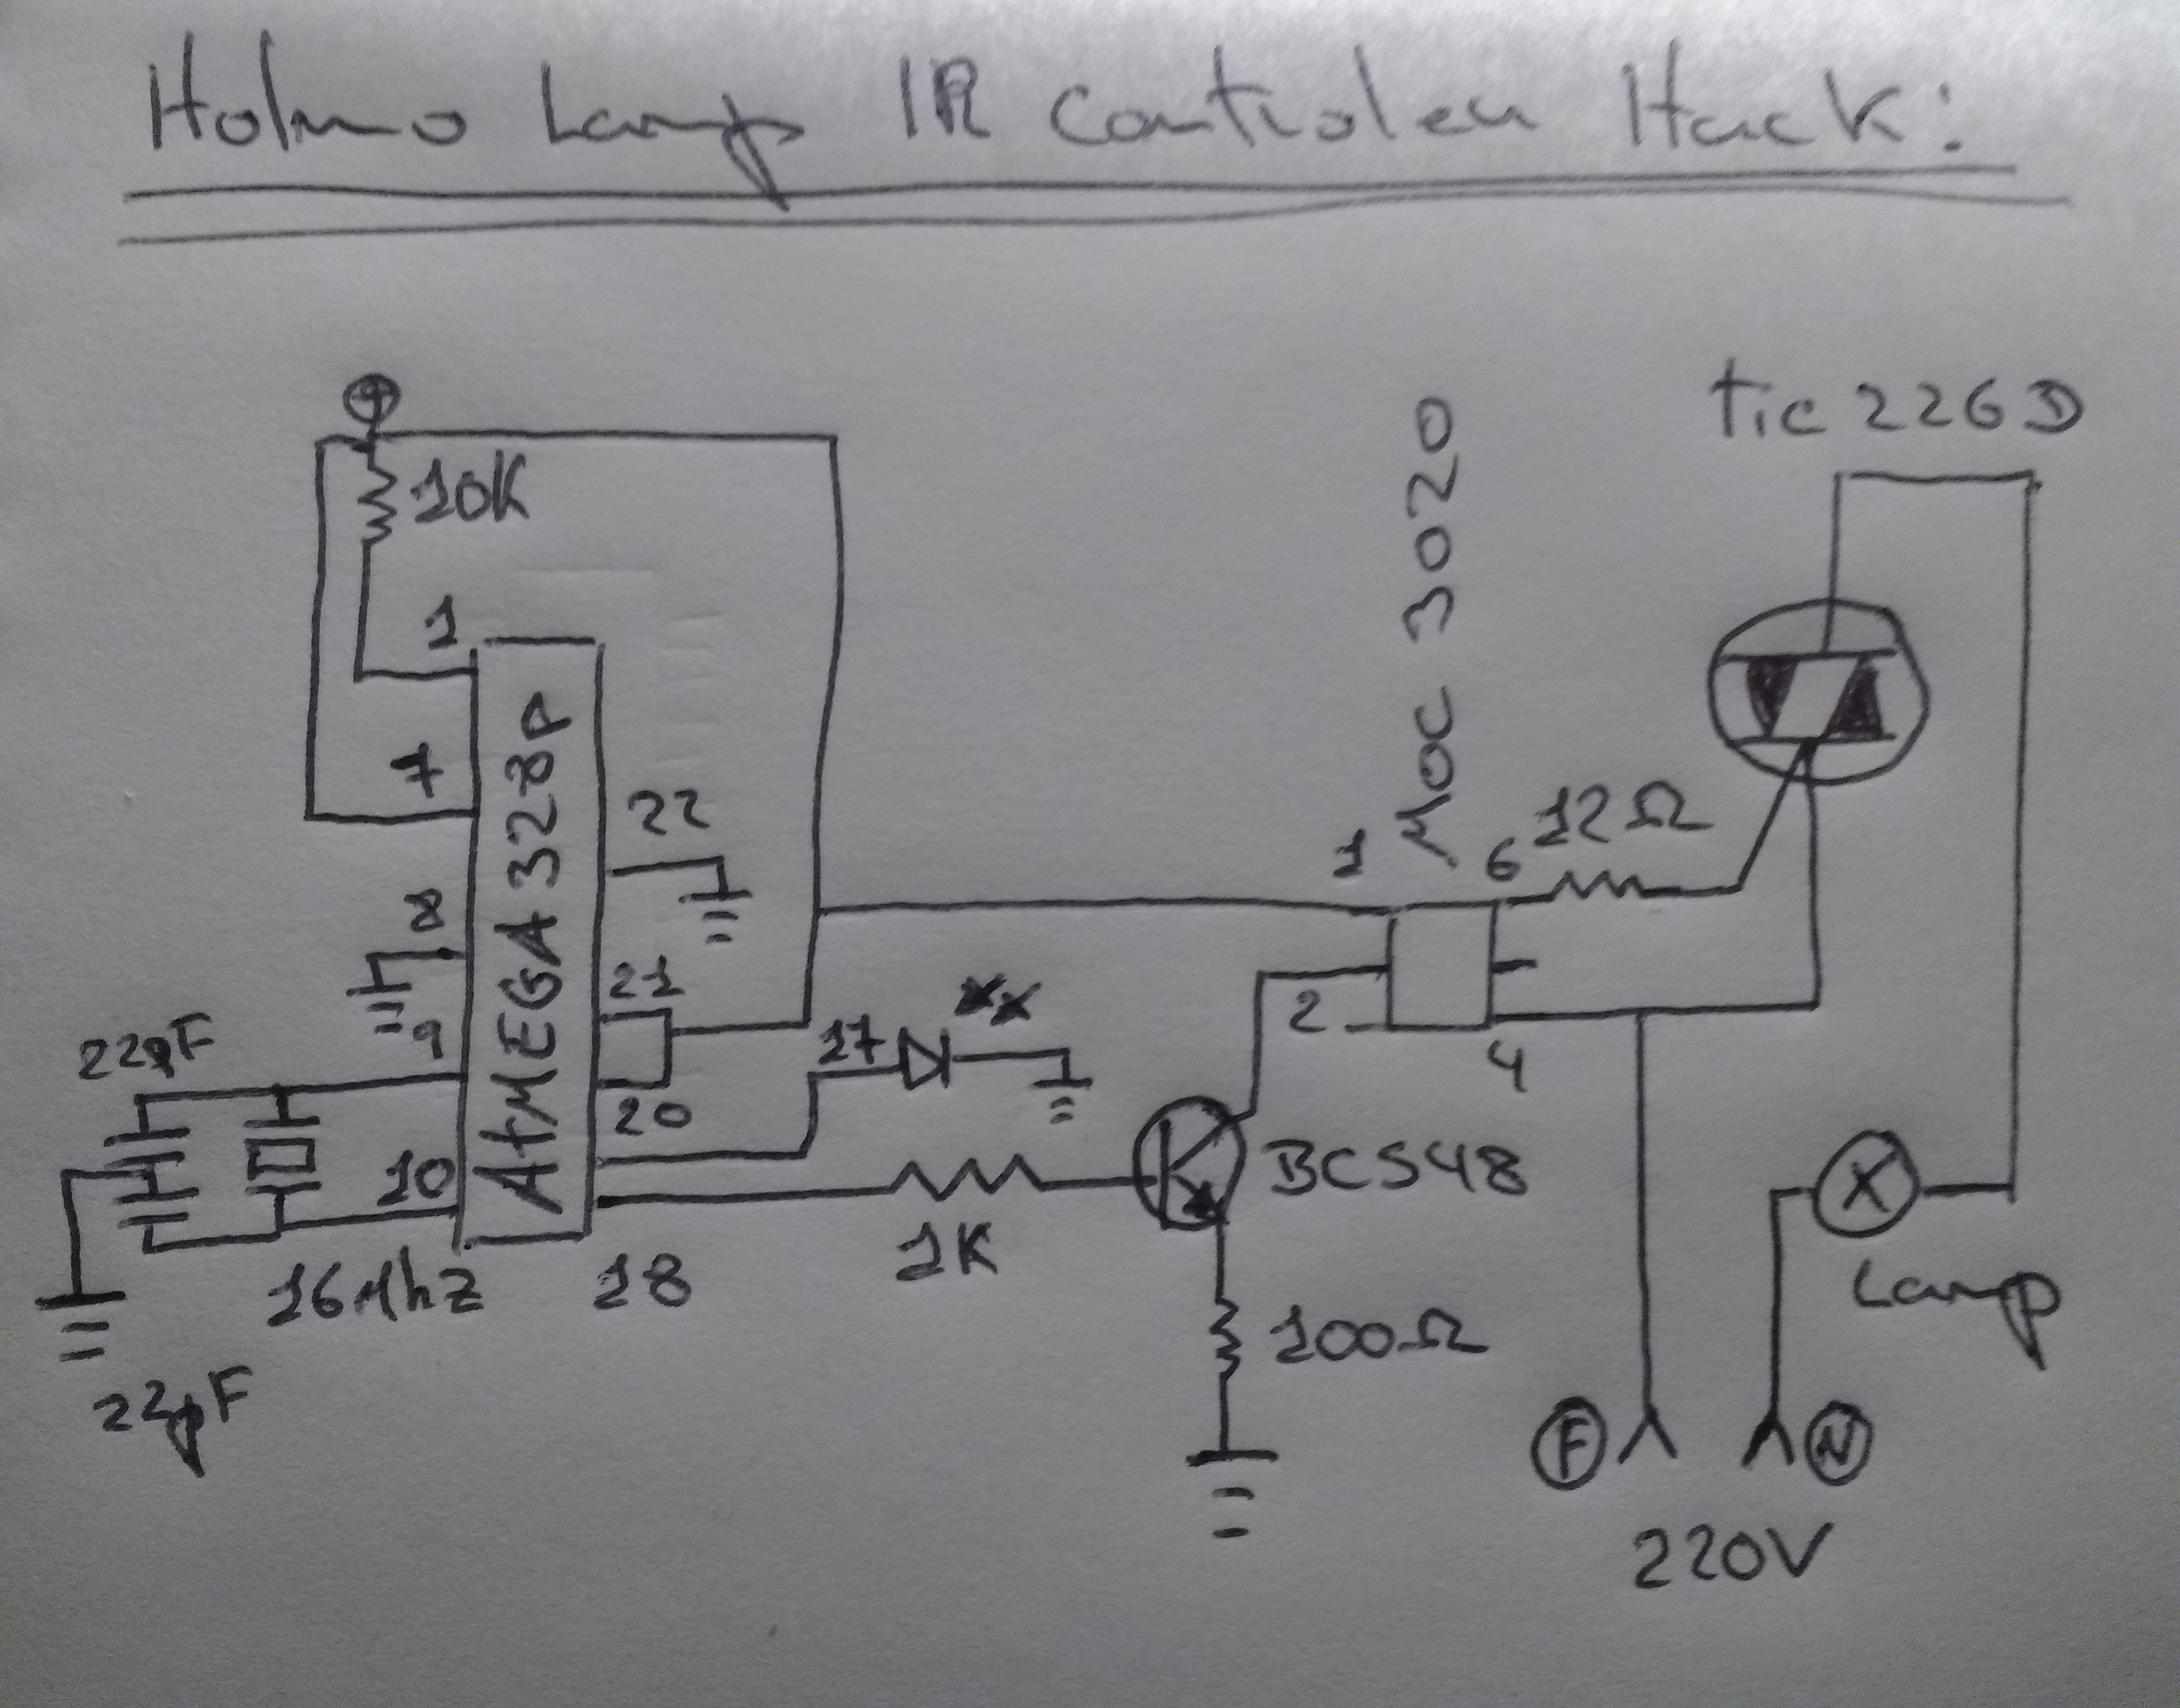 Holmo Lamp IR controler Hack:
tic 226D
MOC 3020
10K
1
7
ATMEGA328P
22
12Ω
1
6
8
21
9
22pF
17
2
4
20
10
BC548
1K
16Mhz
18
Lamp
100Ω
22pF
F
N
220V